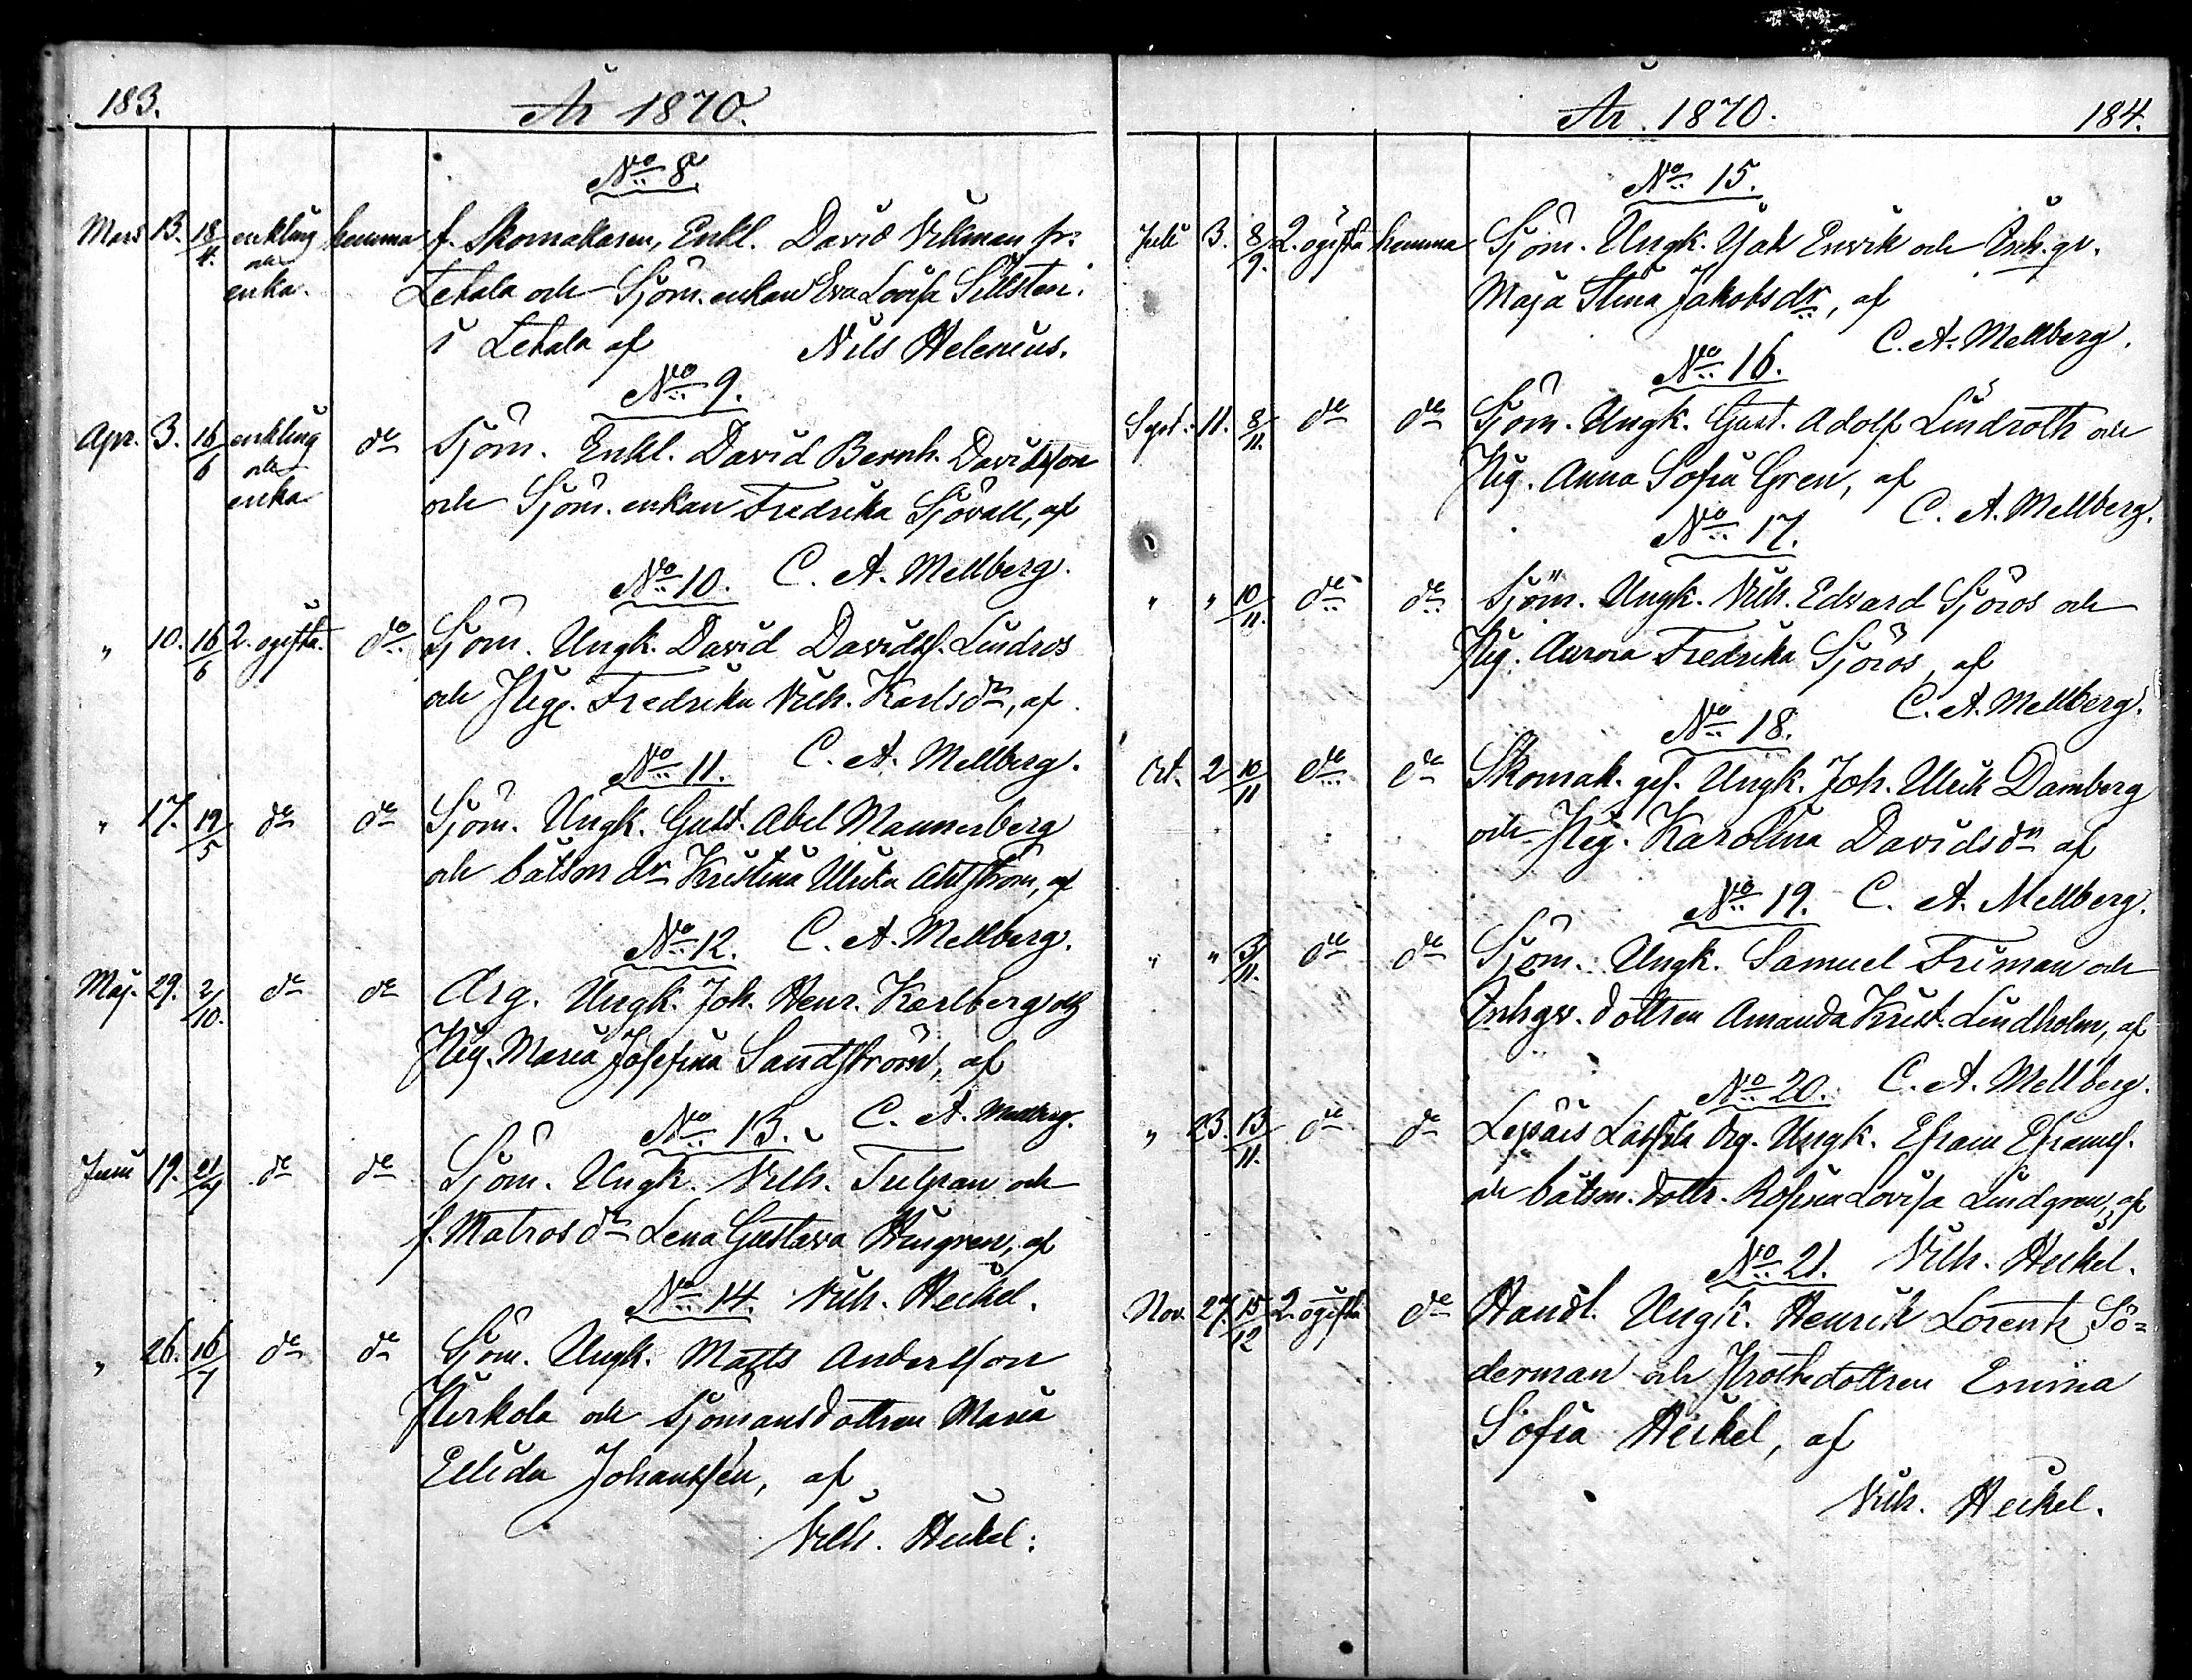 183.
År 1870.
No 8
Mars 13. 18/4. enkling och enka. hemma f. Skomakaren, Enkl. David Villman fr:
Letala och Sjöm. enkan Eva Lovisa Sillsten
i Letala af Nils Helenius.
No 9.
Apr. 3. 16/6 enkling och enka do Sjöm. Enkl. David Bernh. Davidsson
och Sjöm. enkan Fredrika Sjövall, af
No 10. C. A. Mellberg.
" 10. 16/6 2. ogifta. do Sjöm. Ungk. David Davidss. Lindros
och Pig. Fredrika Vilh. Karlsdr, af
No 11. C. A. Mellberg.
" 17. 19/5 do do Sjöm. Ungk. Gust. Abel Mannerberg
och båtsm dr Kristina Ulrika Ahlström, af
No 12. C. A. Mellberg.
Maj. 29. 2/10. do do Arg. Ungk. Joh. Henr. Karlberg och
Pig. Maria Josefina Sandström, af
No 13. C. A. Mellberg.
Juni 19. 21/7 do do Sjöm. Ungk. Vilh. Tulpan och
f. Matros dr Lena Gustava Hengren, af
No 14. Vilh. Heikel.
" 26. 16/7 do do Sjöm. Ungk. Matts Andersson
Pirkola och sjömansdottren Maria
Elida Johansson, af
Vilh. Heikel.
År. 1870. 184.
No 15.
Juli 3. 8/9. 2. ogifta hemma Sjöm. Ungk. Isak Envik och Inh. gv.
Maja Stina Jakobsdr, af
C. A. Mellberg.
No 16.
Sept. 11. 8/11. do do Sjöm. Ungk. Gust. Adolf Lindroth och
Pig. Anna Sofia Gren, af
C. A. Mellberg.
No 17.
" " 10/11. do do Sjöm. Ungk. Vilh. Edvard Sjöros och
Pig. Aurora Fredrika Sjöros, af
C. A. Mellberg.
No 18.
Oct. 2 10/11 do do Skomak. ges. Ungk. Joh. Ulrik Damberg
och Pig. Karolina Davidsdr af
No 19. C. A. Mellberg.
" " 3/11. do do Sjöm. Ungk. Samuel Friman och
Inhgv. dottren Amanda Krist. Lindholm, af
No 20. C. A. Mellberg.
" 23. 13/11. do do Lepäis Drg. Ungk. Efraim Efraimss.
och båtsm. dottr. Rosina Lovisa Lindgren, af
No 21. Vilh. Heikel.
Nov. 27. 15/12 2. ogifta do Handl. Ungk. Henrik Lorentz Sö=
derman och Prostedottren Emma
Sofia Heikel, af
Vilh. Heikel.